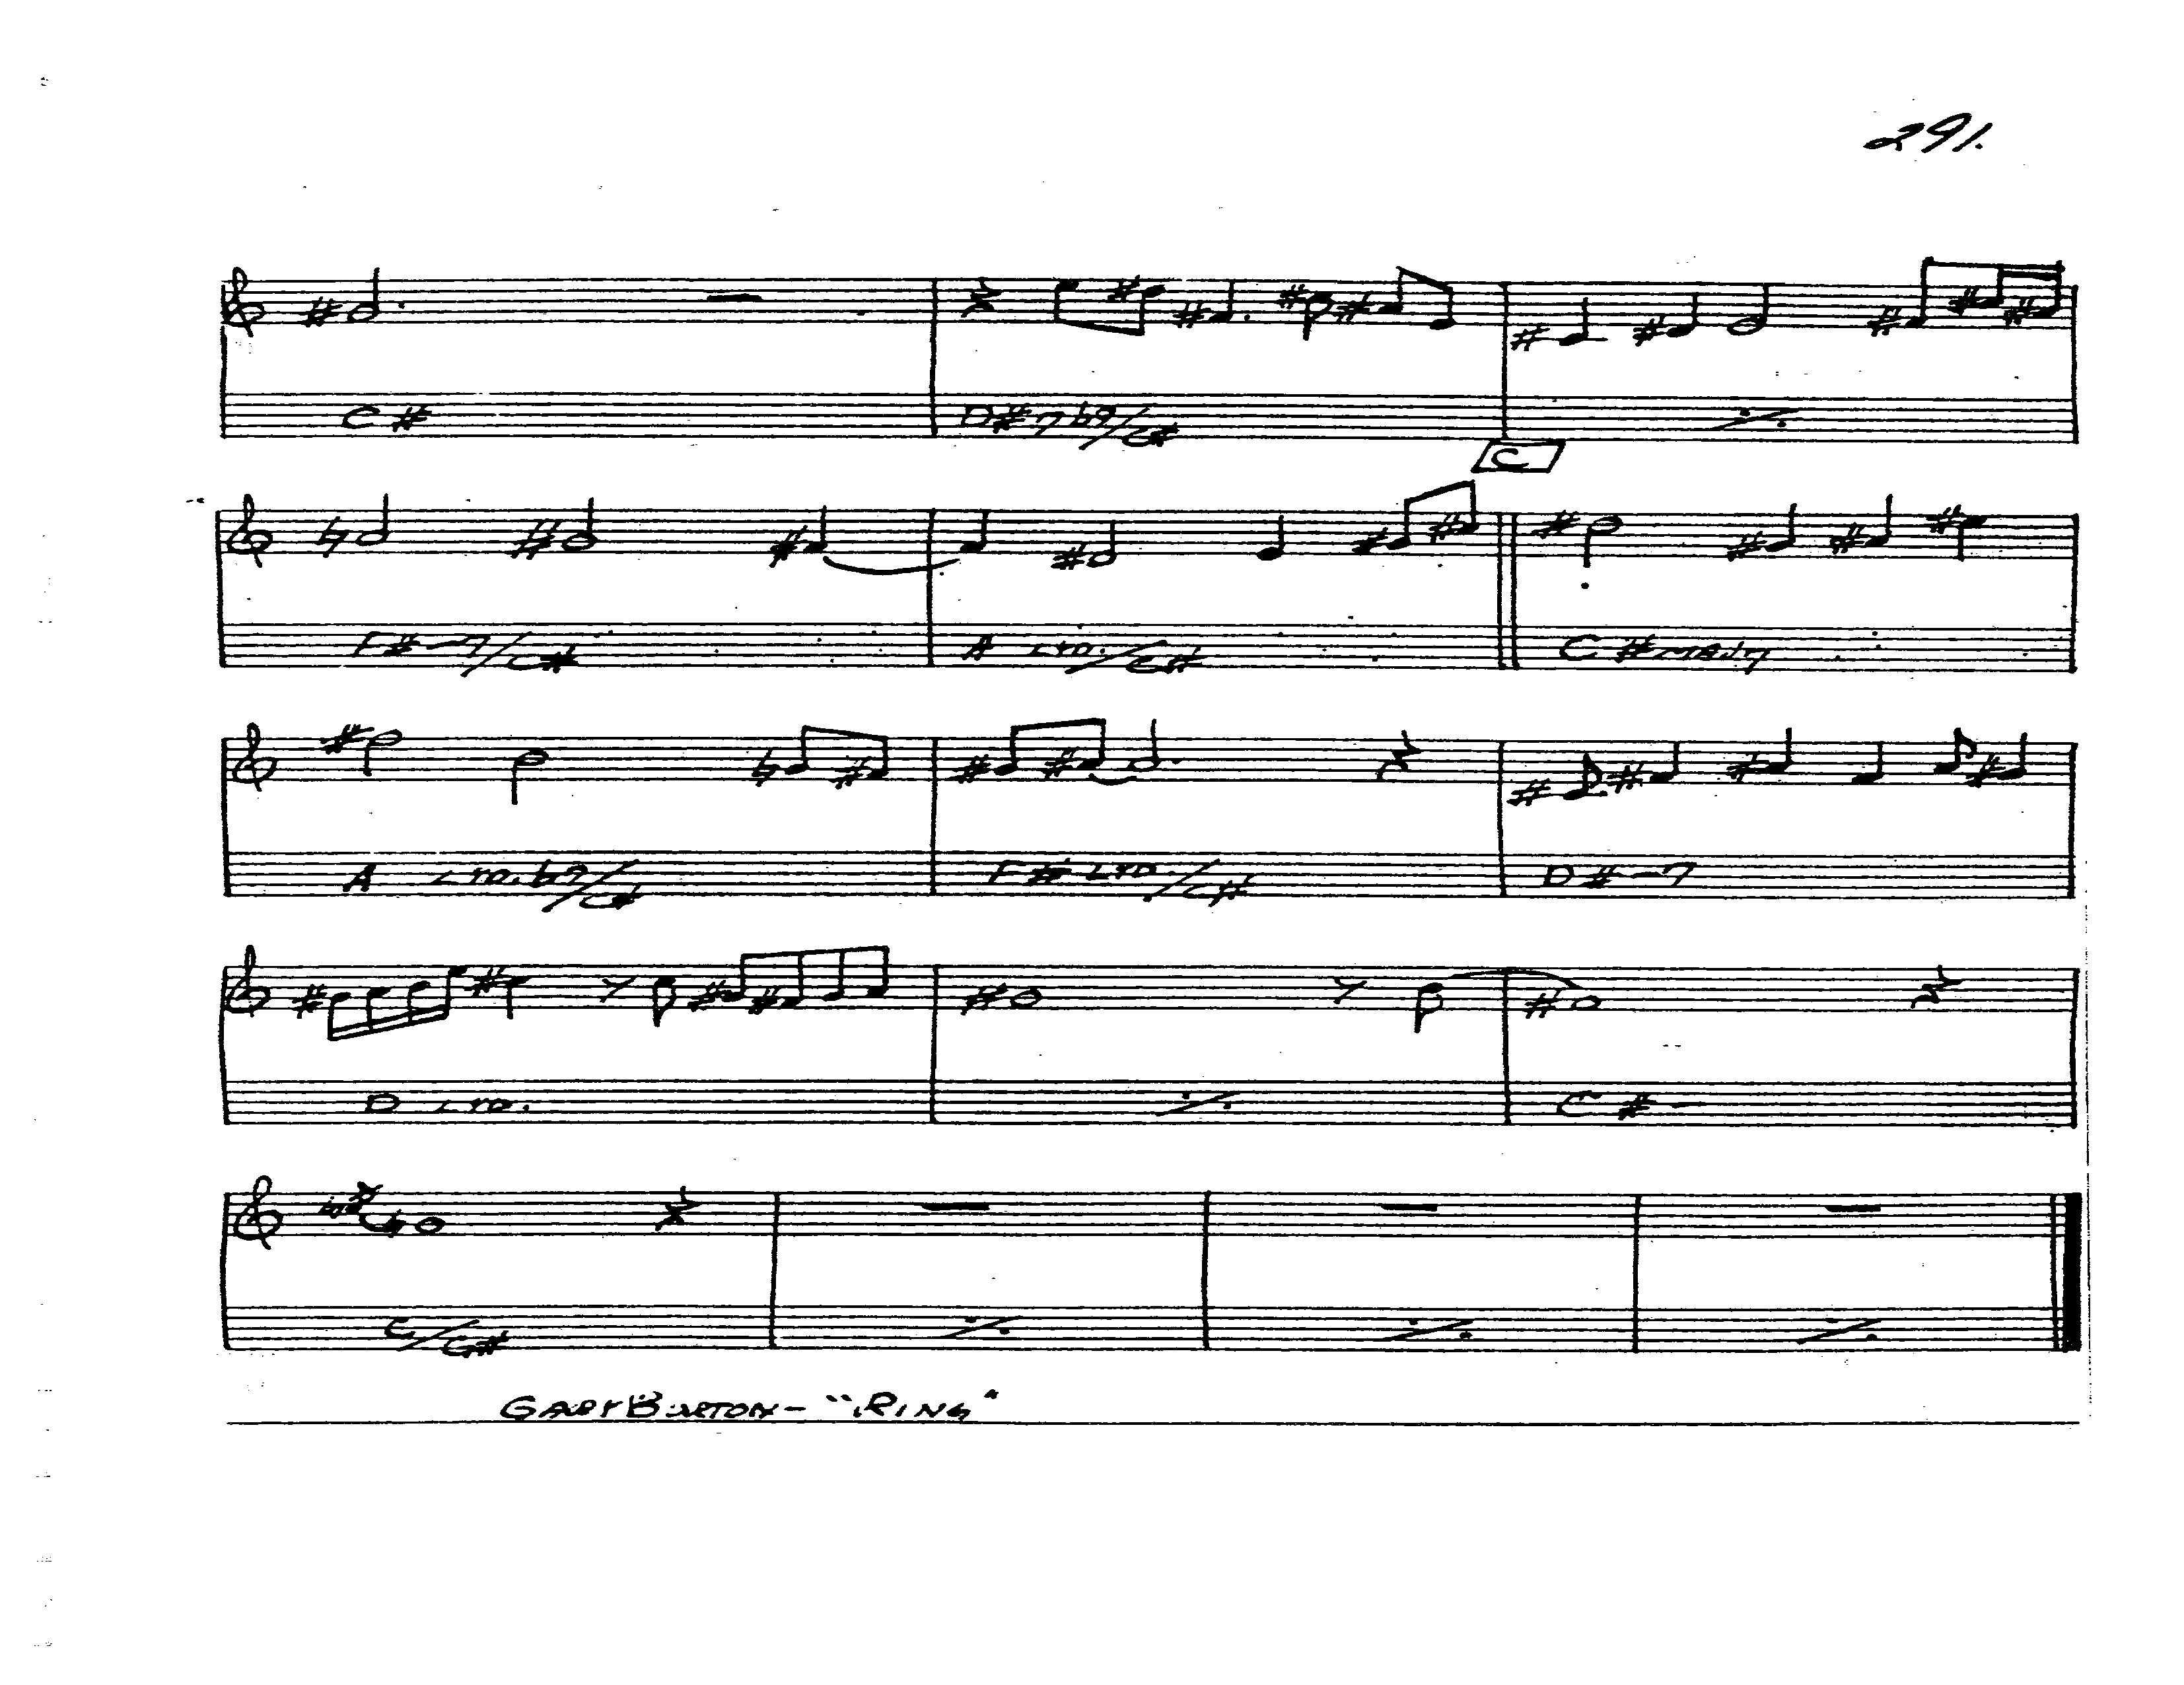 291.
C# D#7b9/C#
C
F#-7/C# A LYD./C# C#MAJ7
A LYD. b9/C# F# LYD./C# D#-7
D LYD. C#-
C/G#
GARY BURTON - "RING"